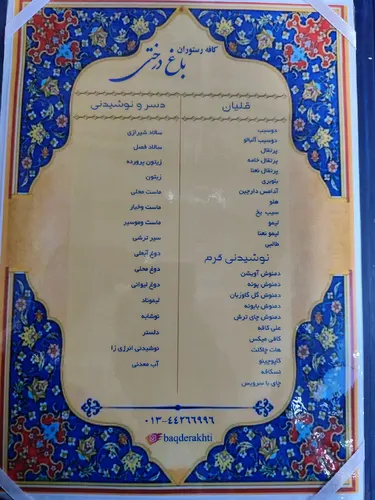 کافه رستوران
باغ درختی
قلیان
دوسیب
دوسیب آلبالو
پرتقال
پرتقال خامه
پرتقال نعنا
بلوبری
آدامس دارچین
هلو
سیب یخ
لیمو
لیمو نعنا
طالبی
نوشیدنی گرم
دمنوش آویشن
دمنوش پونه
دمنوش گل گاوزبان
دمنوش بابونه
دمنوش چای ترش
علی کافه
کافی میکس
هات چاکلت
کاپوچینو
نسکافه
چای با سرویس
دسر و نوشیدنی
سالاد شیرازی
سالاد فصل
زیتون پرورده
زیتون
ماست محلی
ماست وخیار
ماست وموسیر
سیر ترشی
دوغ آبعلی
دوغ محلی
دوغ لیوانی
لیموناد
نوشابه
دلستر
نوشیدنی انرژی زا
آب معدنی
۰۱۳-۴۴۲۶۶۹۹۶
baqderakhti